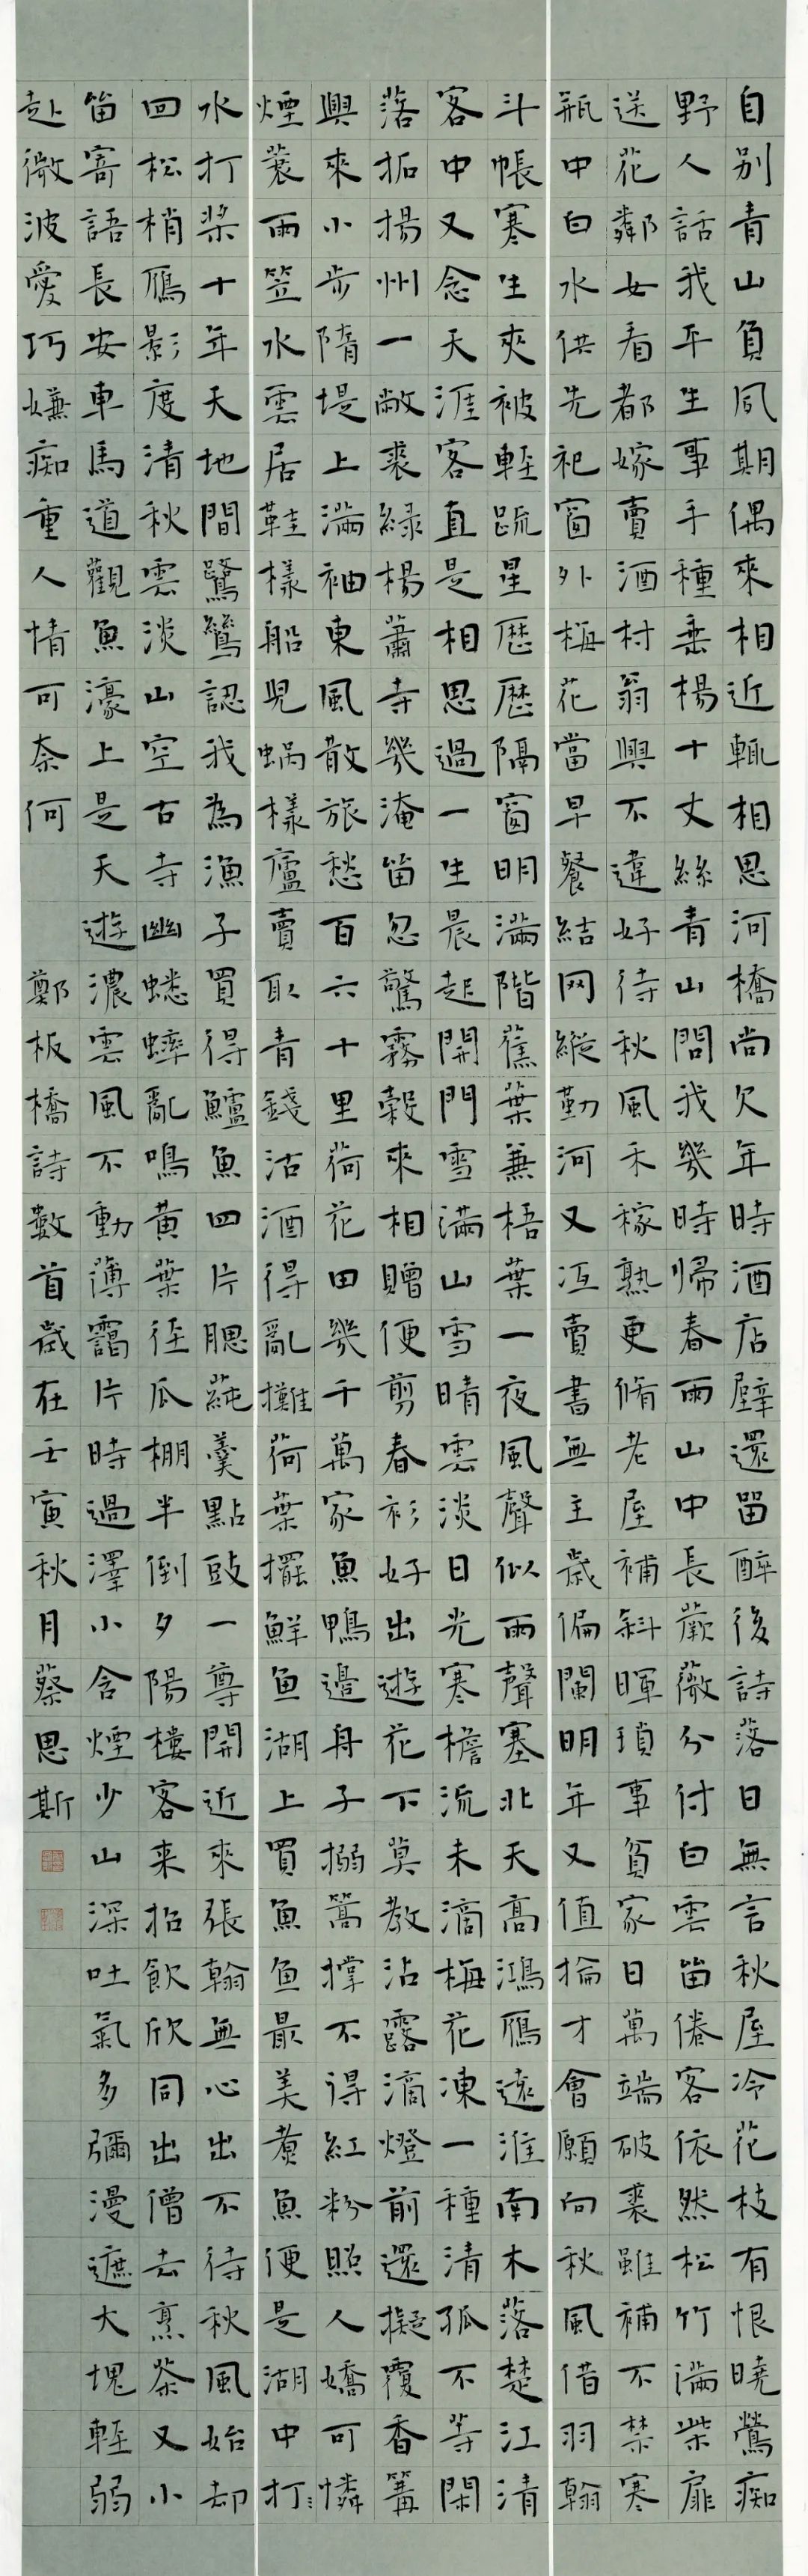 自別青山負夙期偶來相近輒相思河橋尚欠年時酒店壁還留醉後詩落日無言秋屋冷花枝有恨曉鶯痴
野人話我平生事手種垂楊十丈絲青山問我幾時歸春雨山中長蕨薇分付白雲留倦客依然松竹滿柴扉
送花鄰女看都嫁賣酒村翁興不違好待秋風禾稼熟更脩老屋補斜暉瑣事貧家日萬端破裘雖補不禁寒
瓶中白水供先祀窗外梅花當早餐結网縱勤河又冱賣書無主歲偏闌明年又值掄才會願向秋風借羽翰
斗帳寒生夾被輕疏星歷歷隔窗明滿階蕉葉兼梧葉一夜風聲似雨聲塞北天高鴻雁遠淮南木落楚江清
客中又念天涯客直是相思過一生晨起開門雪滿山雪晴雲淡日光寒檐流未滴梅花凍一種清孤不等閑
落拓揚州一敝裘綠楊蕭寺幾淹留忽驚霧縠來相贈便剪春衫好出遊花下莫教沾露滴燈前還擬覆香篝
興來小步隋堤上滿袖東風散旅愁百六十里荷花田幾千萬家魚鴨邊舟子搦篙撐不得紅粉照人嬌可憐
煙蓑雨笠水雲居鞋樣船兒蝸樣廬賣取青錢沽酒得亂攤荷葉擺鮮魚湖上買魚魚最美煮魚便是湖中打
水打槳十年天地間鷺鷥認我為漁子買得鱸魚四片腮蒓羹點豉一尊開近來張翰無心出不待秋風始却
回松梢雁影度清秋雲淡山空古寺幽蟋蟀亂鳴黃葉徑瓜棚半倒夕陽樓客来招飲欣同出僧去烹茶又小
留寄語長安車馬道觀魚濠上是天遊濃雲風不動薄靄片時過澤小含煙少山深吐氣多彌漫遮大塊輕弱
赴微波愛巧嫌痴重人情可奈何 鄭板橋詩數首歲在壬寅秋月蔡思斯